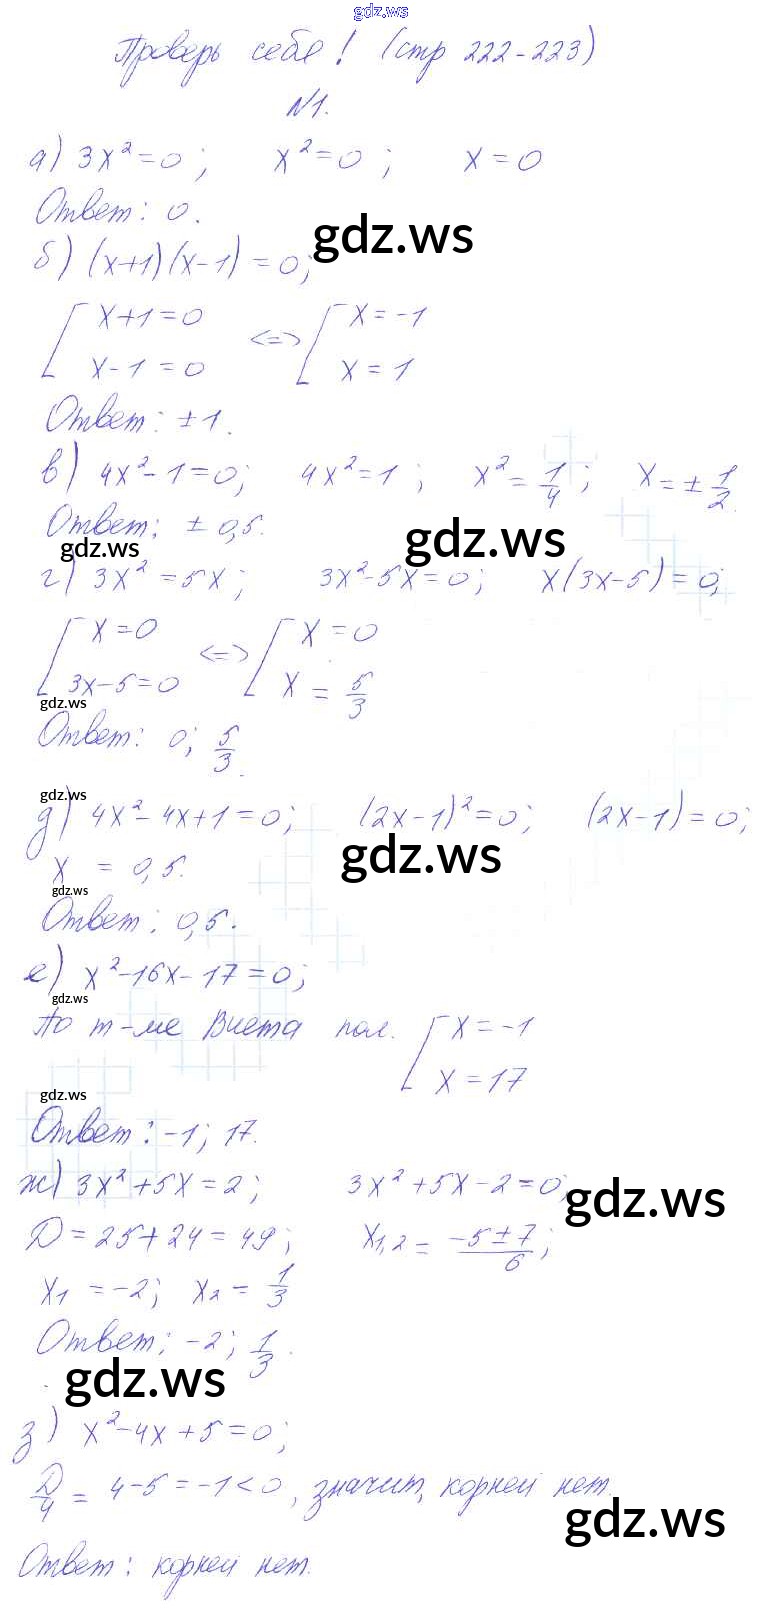 gdz.ws
Проверь себя! (стр 222-223)
№1.
а) 3x²=0; x²=0; x=0
Ответ: 0.
gdz.ws
б) (x+1)(x-1)=0;
[ x+1=0 <=> [ x=-1
x-1=0 x=1
Ответ: ±1.
в) 4x²-1=0; 4x²=1; x²=1/4; x=±1/2.
Ответ: ±0,5.
gdz.ws
gdz.ws
г) 3x²=5x; 3x²-5x=0; x(3x-5)=0;
[ x=0 <=> [ x=0
3x-5=0 x=5/3
gdz.ws
Ответ: 0; 5/3.
gdz.ws
д) 4x²-4x+1=0; (2x-1)²=0; (2x-1)=0;
x = 0,5.
gdz.ws
gdz.ws
Ответ: 0,5.
е) x²-16x-17=0;
gdz.ws
По т-ме Виета пол. [ x=-1
x=17
gdz.ws
Ответ: -1; 17.
ж) 3x²+5x=2; 3x²+5x-2=0;
gdz.ws
D=25+24=49; x1,2=(-5±7)/6;
x1 =-2; x2 = 1/3
Ответ: -2; 1/3.
gdz.ws
з) x²-4x+5=0;
D/4 = 4-5=-1<0, значит, корней нет.
gdz.ws
Ответ: корней нет.